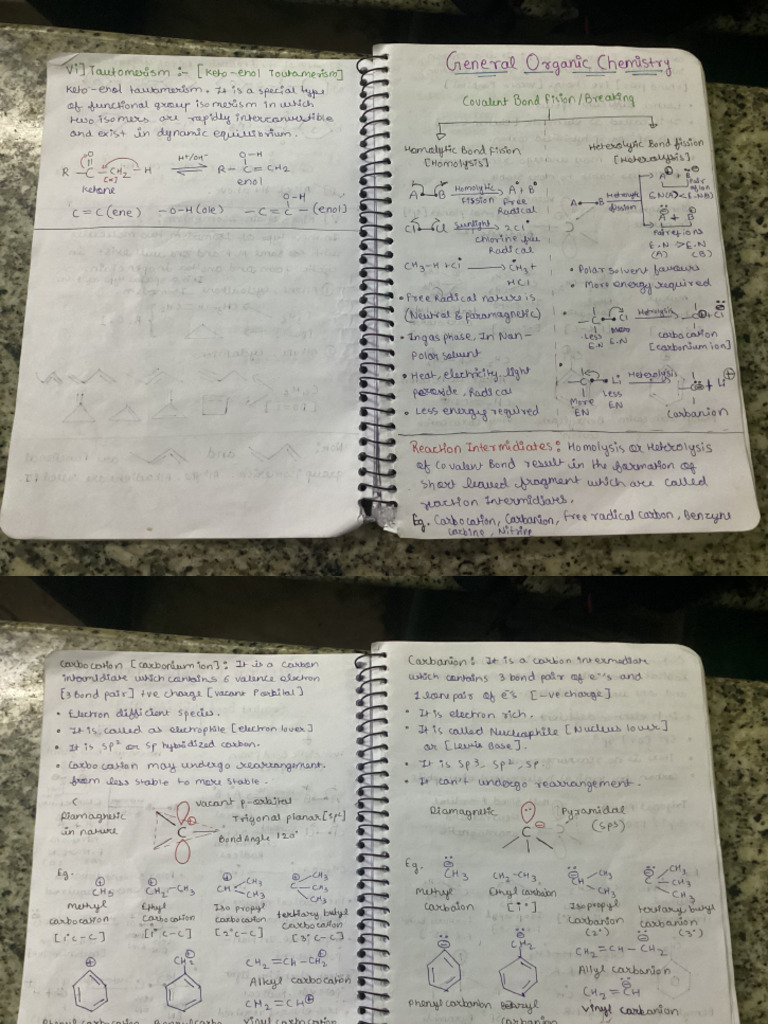 Vi] Tautomerism :- [Keto-enol Toutamerism]
Keto-enol tautamerism. It is a special type
of functional group isomerism in which
two isomers are rapidly interconvertible
and exist in dynamic equilibrium.
O
R - C - CH2 - H H+/OH- ⇌ R - C = CH2
[α]
O-H
ketone
enol
O-H
C = C (ene) -O-H (ole) - C = C - (enol)
General Organic Chemistry
Covalent Bond Fision/Breaking
Homolytic Bond Fission
[Homolysis]
A - B Homolytic Fission A• B•
Free
Radical
Cl - Cl Sunlight 2Cl•
Chlorine free
Radical
CH3-H + Cl• → CH3 +
HCl
• Free Radical nature is
(Neutral & paramagnetic)
• In gas phase, In Non-
Polar solvent
• Heat, electricity, light
peroxide, Radical
• Less energy required
Heterolytic Bond fission
[Heterolysis]
A - B Heterolytic fission
A⊕ + B⊖
E.N(A) < E.N(B)
A + B
E.N > E.N
(A) (B)
• Polar solvent favours
• More energy required
• - C - Cl Heterolysis - C⊕ + Cl⊖
Less E.N
More E.N
carbocation
[carboniumion]
• - C - Li Heterolysis - C⊖ + Li⊕
More EN
Less EN
Carbanion
Reaction Intermidiates: Homolysis or Heterolysis
of Covalent Bond result in the formation of
short leaved fragment which are called
reaction Intermidiats.
Eg. Carbocation, Carbanion, Free radical carbon, Benzyne
carbine, Nitrine
Carbocation [carboniumion]: It is a Carbon
intermidiate which contains 6 valence electron
[3 Bond pair] +ve charge [vacant Porbital]
• Electron difficient species.
• It is called as electrophile [electron lover]
• It is SP2 or Sp hybridized carbon.
• Carbocation may undergo rearrangement
from less stable to more stable.
Diamagnetic
in nature
vacant p-orbital
C⊕
Trigonal planar [Sp2]
Bond Angle 120°
Eg.
⊕
CH3
Methyl
carbocation
[1° C-C]
⊕
CH2-CH3
Ethyl
Carbocation
[1° C-C]
⊕
CH CH3
CH3
Iso propyl
Carbocation
[2° C-C]
⊕
C CH3
CH3
CH3
tertiary butyl
carbocation
[3° C-C]
⊕
⊕
CH2
CH2 = CH - CH2⊕
Allyl carbocation
CH2 = CH⊕
Phenyl carbocation
Vinyl carbocation
Carbanion: It is a carbon intermediate
which contains 3 bond pair of e-s and
1 lone pair of e-s [-ve charge]
• It is electron rich.
• It is called Nucleophile [Nucleus lover]
or [Lewis Base].
• It is Sp3, Sp2, Sp.
• It can't undergo rearrangement.
Diamagnetic
C⊖
Pyramidal
(Sp3)
Eg.
⊖
CH3
Methyl
carbaion
CH2-CH3
Ethyl carbabion
[1°]
⊖
CH CH3
CH3
Isopropyl
Carbanion
(2°)
⊖
C CH3
CH3
CH3
tertiary butyl
carbanion
(3°)
⊖
⊖
CH2
CH2 = CH - CH2⊖
Allyl carbanion
CH2 = CH⊖
Phenyl carbanion
Benzyl
carbanion
Vinyl carbanion